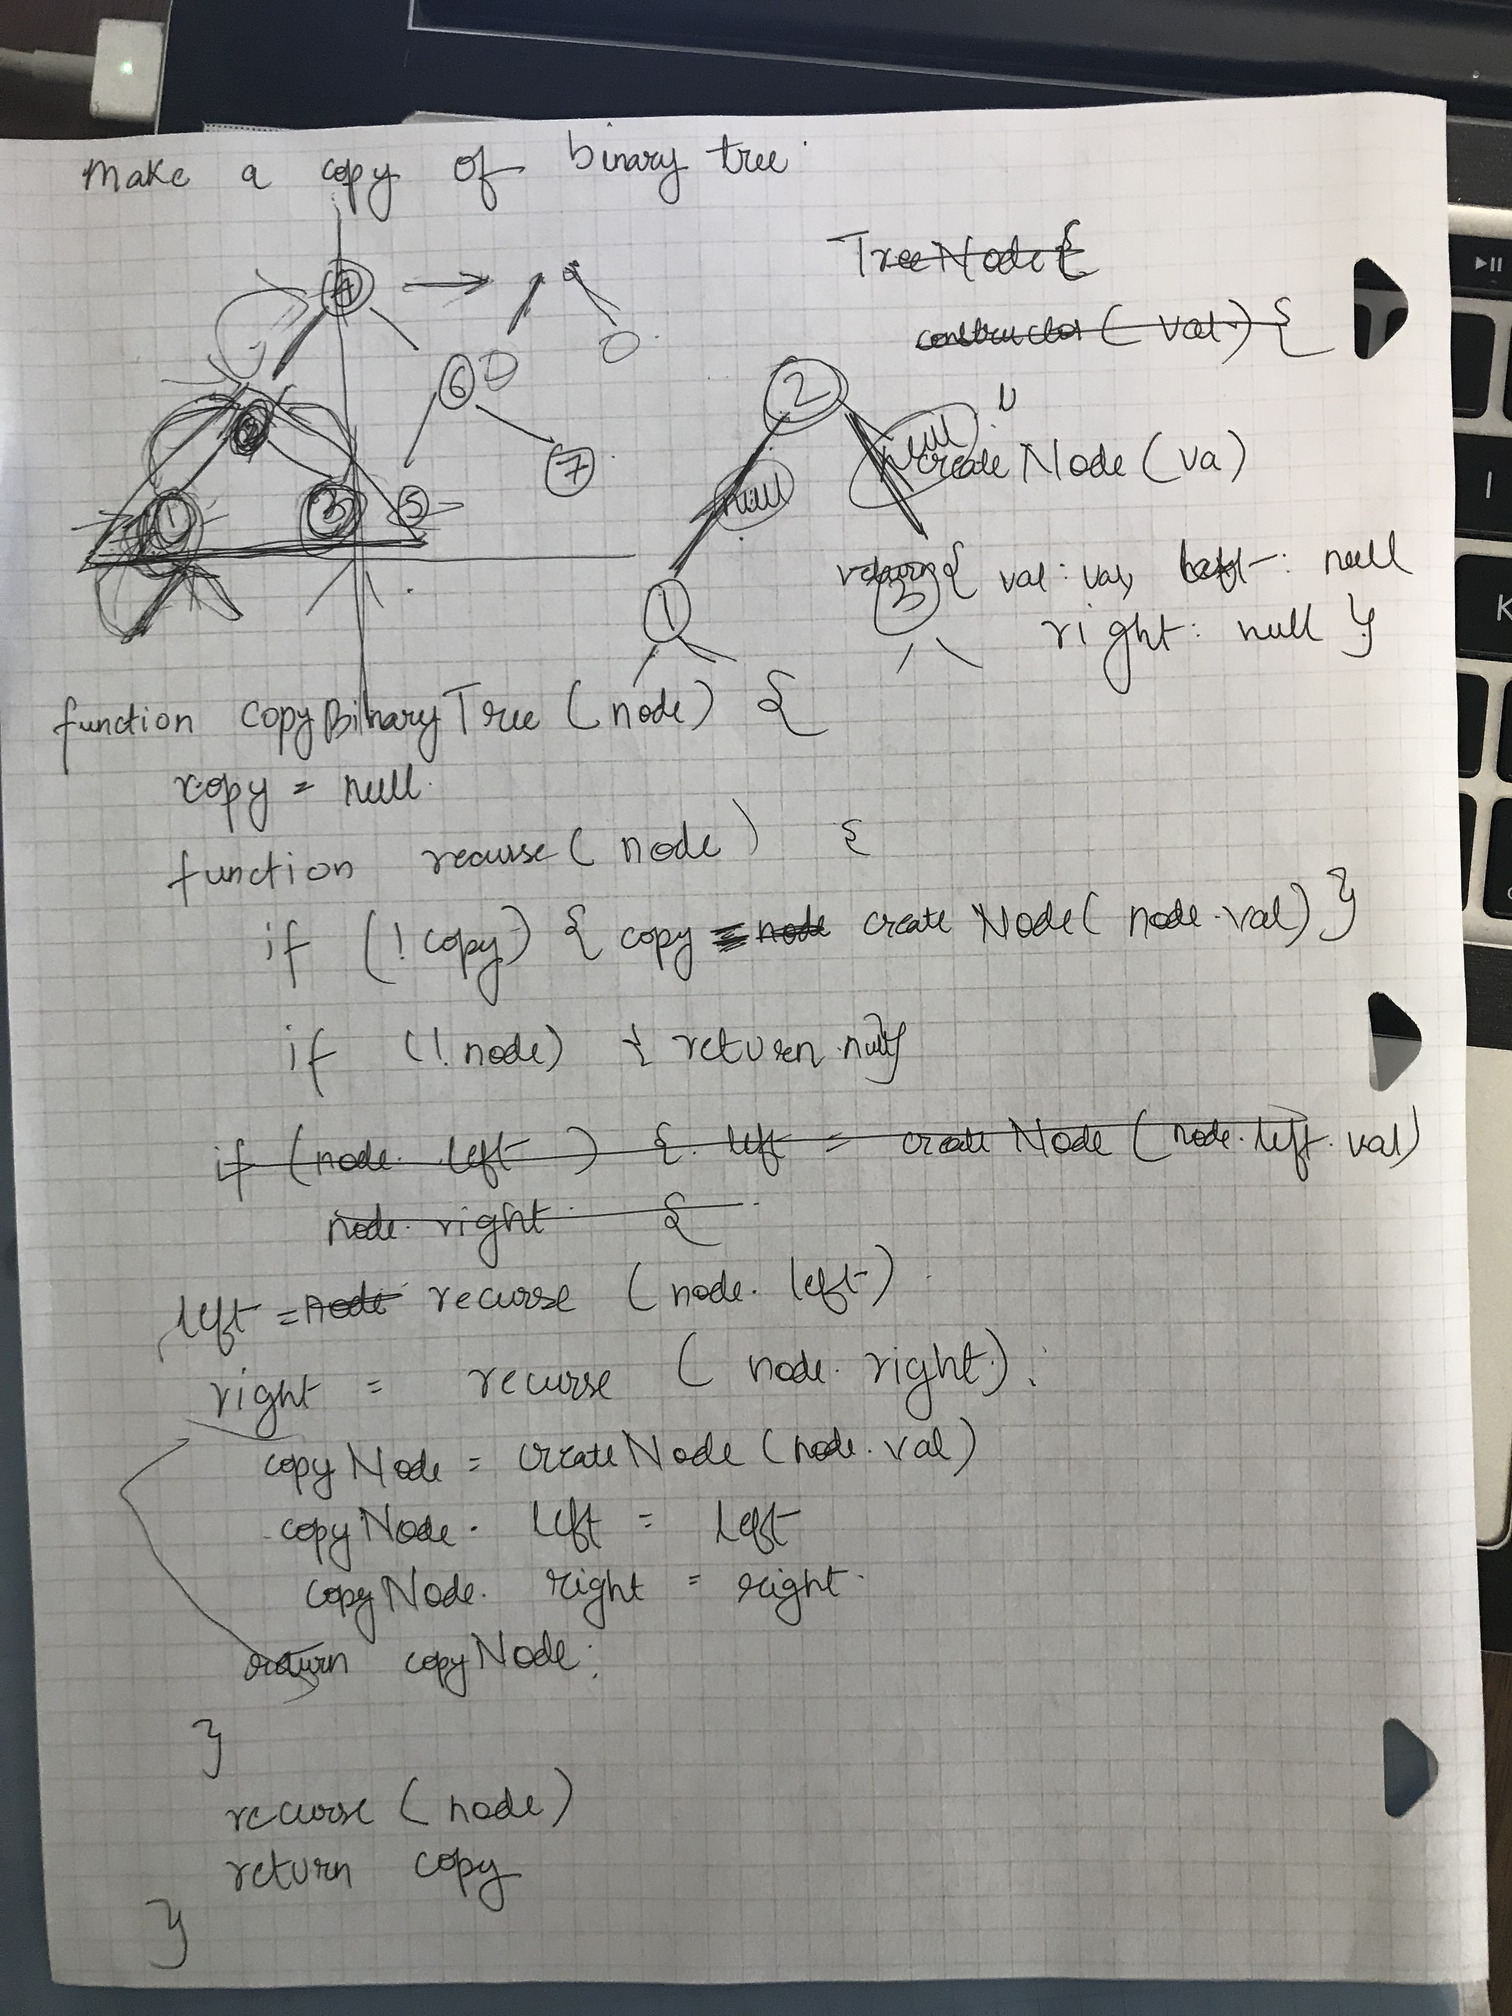 Make a copy of binary tree
TreeNode {
constructor ( val ) {
4
6
2
7
1 3 5
2
null null
1 3
createNode (va)
return { val : val, left : null
right : null }
function copyBinaryTree ( node ) {
copy = null
function recurse ( node ) {
if ( ! copy ) { copy = node createNode ( node.val ) }
if ( ! node ) { return null }
if ( node. left ) { left = createNode ( node. left. val )
node. right {
left = node recurse ( node. left )
right = recurse ( node. right ) ;
copyNode = createNode ( node. val )
copyNode. left = left
copyNode. right = right
return copyNode ;
}
recurse ( node )
return copy
}